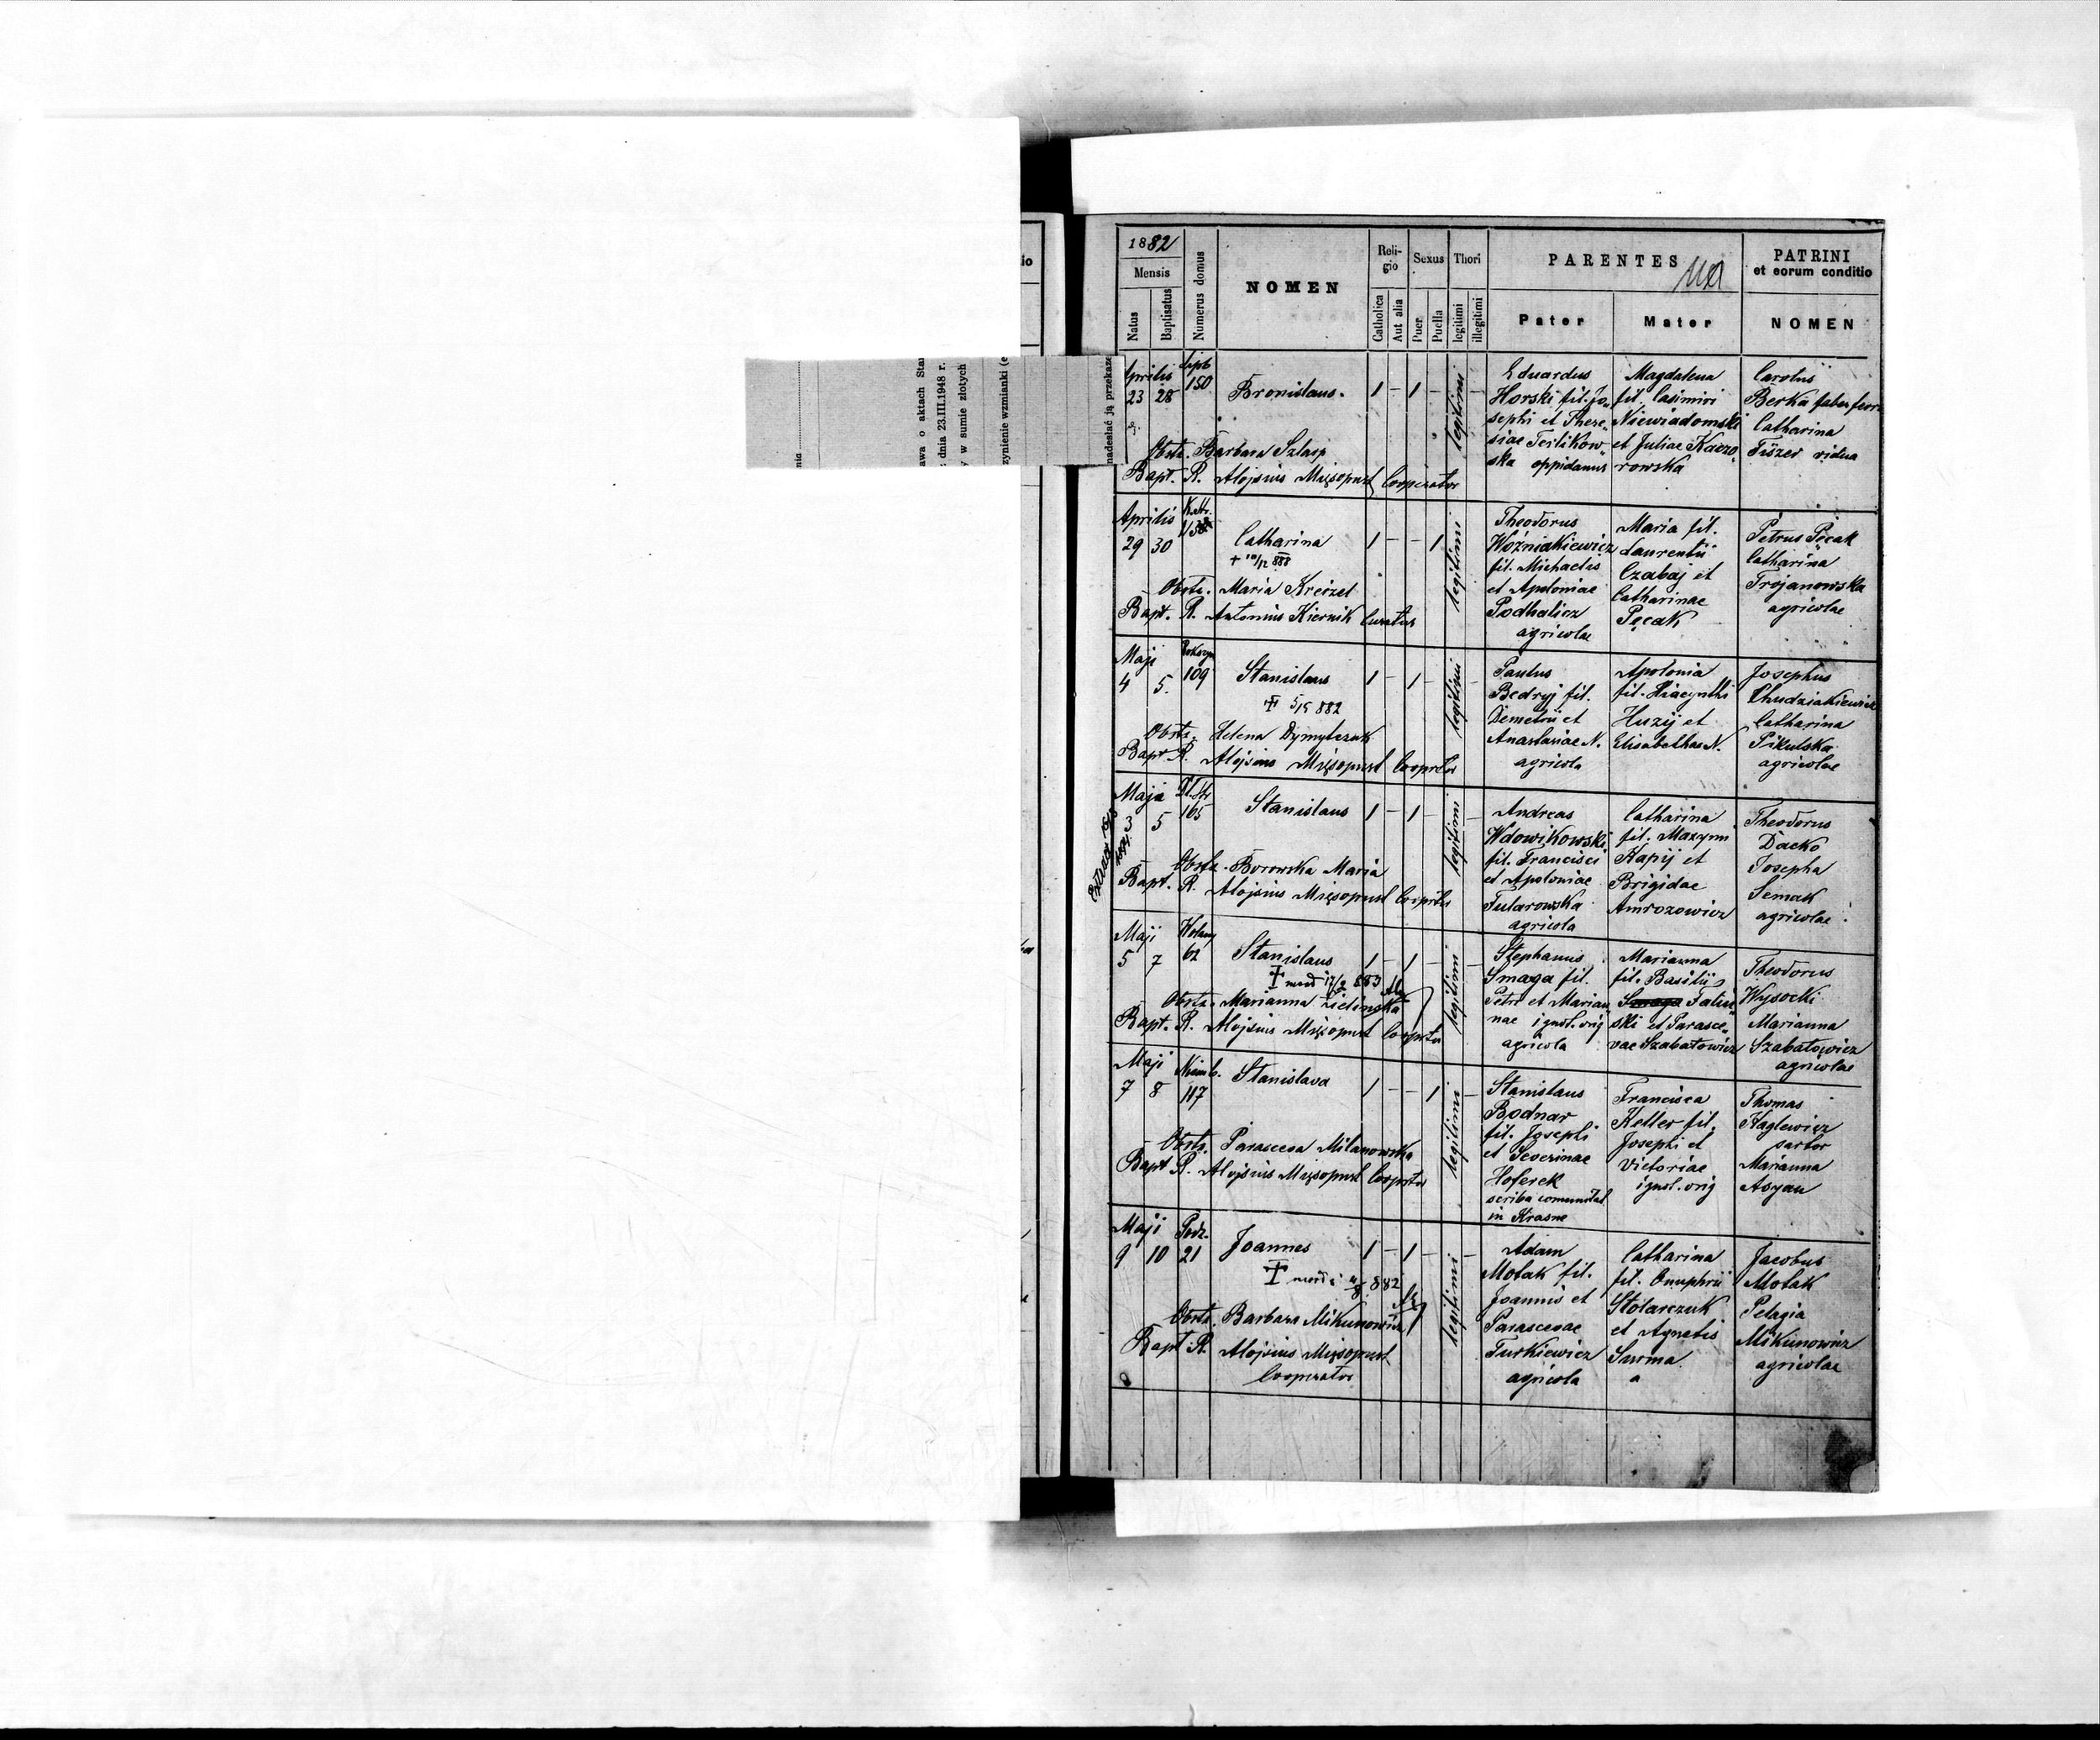 io
awa o aktach Sta
dnia 23.III.1948 r.
y w sumie złotych
zynienie wzmianki (e
nadesłać ją przekaze
1882
Mensis
Natus
Baptisatus
Numerus domus
NOMEN
Religio
Catholica
Aut alia
Sexus
Puer
Puella
Thori
legitimi
illegitimi
PARENTES
Pater
Mater
PATRINI
et eorum conditio
NOMEN
Aprilis
23 28 150 Bronislaus. 1 - 1 - legitimi
Obstr. Barbara Szlasp
Bapt. R. Alojsius Mięsopust Cooperator
Eduardus
Horski fil. Jo„
sephi et There„
siae Terlikow„
ska oppidanus
Magdalena
fil. Casimiri
Niewiadomski
et Juliae Kaczo„
rowska
Carolus
Berka faber ferr
Catharina
Fiszer vidua
Aprilis
29 30 Catharina 1 - - 1 legitimi
Obstr. Maria Kreizel
Bapt. R. Antonius Kiernik Curatus
Theodorus
Woźniakiewicz
fil. Michaelis
et Apoloniae
Podhalicz
agricolae
Maria fil.
Laurentii
Czabaj et
Catharinae
Pęcak
Petrus Pęcak
Catharina
Trojanowska
agricolae
Maji
4 5. 109 Stanislaus 1 - 1 - legitimi
+ 5/5 882
Obstr. Helena Dymytczuk
Bapt R. Alojsius Mięsopust Cooprtor
Paulus
Bedryj fil.
Demetrii et
Anastasiae N.
agricola
Apolonia
fil. Hiacynthi
Huzij et
Elisabethae N.
Josephus
Chudziakiewicz
Catharina
Pikulska
agricolae
Maja
3 5 165 Stanislaus 1 - 1 - legitimi
Obstr. Borowska Maria
Bapt. R. Alojsius Mięsopust Cooprtor
Andreas
Wdowikowski
fil. Francisci
et Apoloniae
Tularowska
agricola
Catharina
fil. Maxymi
Hapij et
Brigidae
Amrozowicz
Theodorus
Dacko
Josepha
Semak
agricolae
Maji
5 7 62 Stanislaus 1 - 1 - legitimi
Obstr. Marianna Zielinska
Bapt. R. Alojsius Mięsopust Cooprtor
Stephanus
Smaga fil.
Petri et Marian„
nae ignot. orig
agricola
Marianna
fil. Basilii
ski et Parasce„
vae Szabatowicz
Theodorus
Wysocki
Marianna
Szabatowicz
agricolae
Maji
7 8 117 Stanislava 1 - - 1 - legitimi
Obstr. Parasceva Milanowska
Bapt R. Alojsius Mięsopust Cooprtor
Stanislaus
Bodnar
fil. Josephi
et Severinae
Hoferek
scriba comunitat
in Krasne
Francisca
Keller fil.
Josephi et
Victoriae
ignot. orig
Thomas
Haglewicz
sartor
Marianna
Asyan
Maji
9 10 21 Joannes 1 - 1 - legitimi
Obstr. Barbara Mikunowicz
Bapt R. Alojsius Mięsopust
Cooperator
Adam
Motak fil.
Joannis et
Parascevae
Turkiewicz
agricola
Catharina
fil. Onuphrii
Stolarczuk
et Agnetis
Surma
Jacobus
Motak
Pelagia
Mikunowicz
agricolae